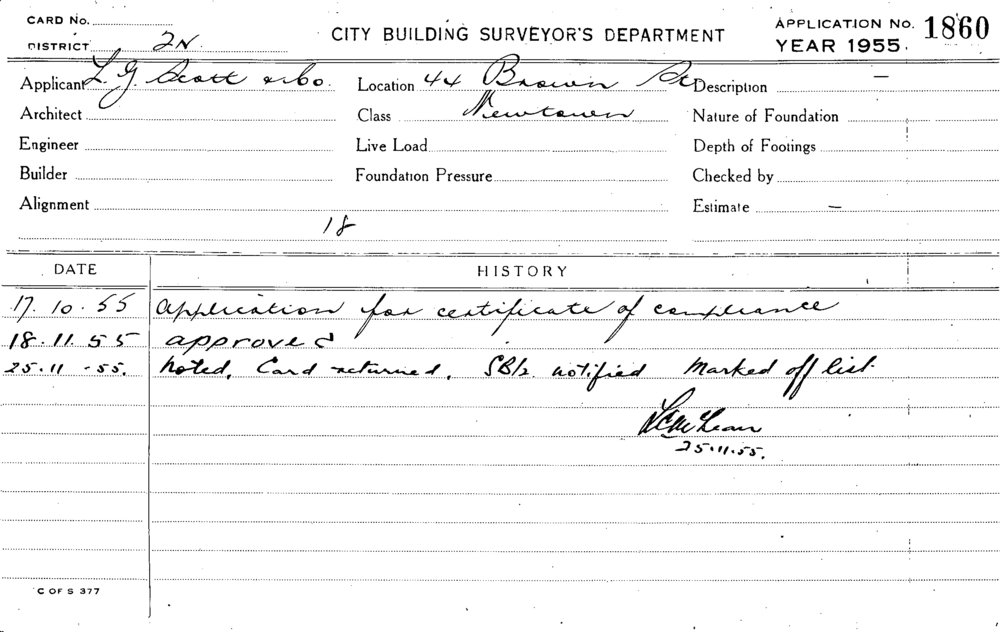 CARD No. APPLICATION No. 1860
CITY BUILDING SURVEYOR'S DEPARTMENT
DISTRICT 2N. YEAR 1955.
Applicant L. G. Scott & Co. Location 44 Brown St Description —
Architect Class Newtown Nature of Foundation
Engineer Live Load Depth of Footings
Builder Foundation Pressure Checked by
Alignment Estimate —
18
DATE HISTORY
17.10.55 Application for certificate of compliance
18.11.55 approved
25.11-55. Noted. Card returned. notified Marked off list.
25.11.55.
C OF S 377